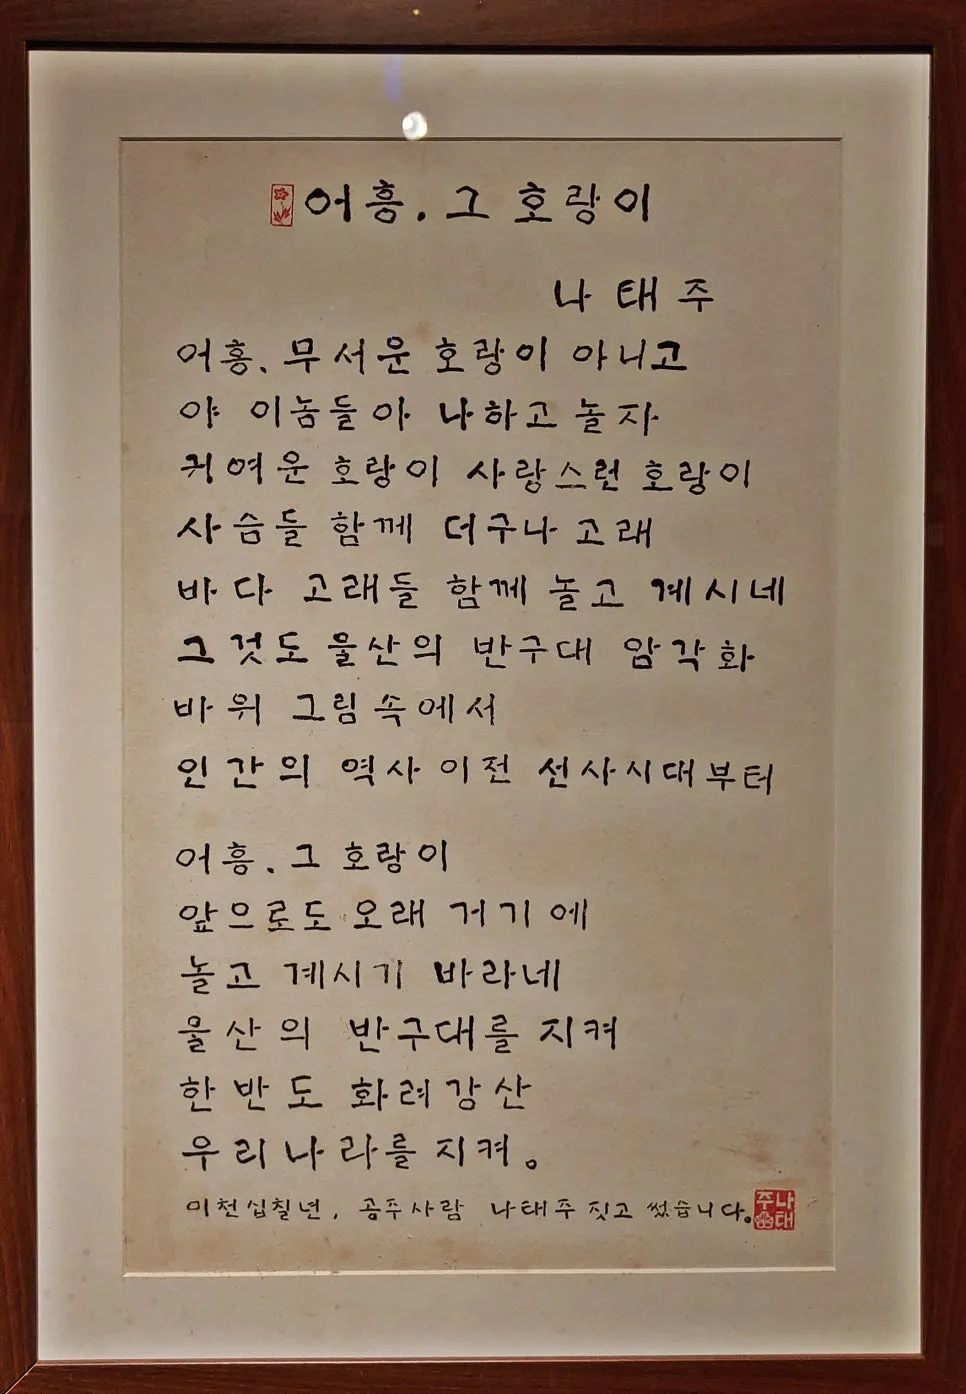 어흥. 그 호랑이
나태주
어흥. 무서운 호랑이 아니고
야 이놈들아 나하고 놀자
귀여운 호랑이 사랑스런 호랑이
사슴들 함께 더구나 고래
바다 고래들 함께 놀고 계시네
그것도 울산의 반구대 암각화
바위 그림 속에서
인간의 역사 이전 선사시대부터
어흥. 그 호랑이
앞으로도 오래 거기에
놀고 계시기 바라네
울산의 반구대를 지켜
한반도 화려강산
우리나라를 지켜。
이천십칠년, 공주사람 나태주 짓고 썼습니다.
나태주